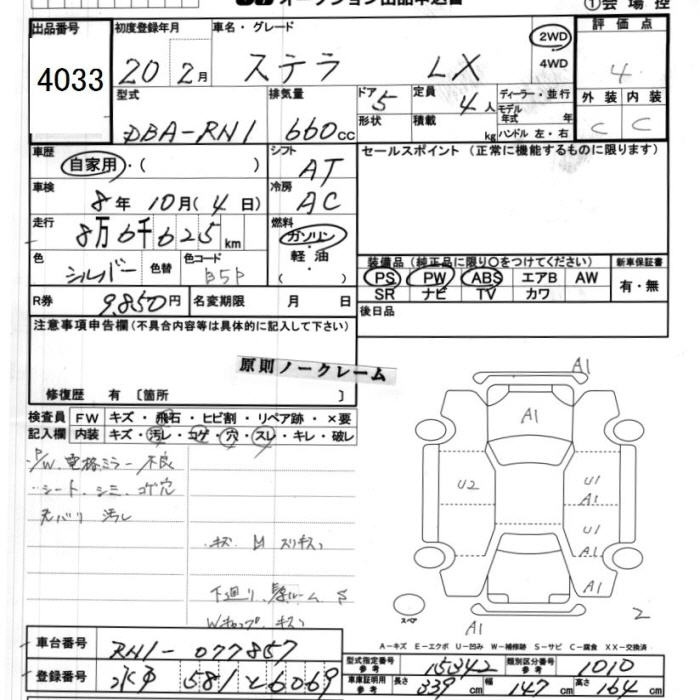 オークション出品申込書
①会場控
出品番号 4033
初度登録年月 20 2月
車名・グレード ステラ LX
2WD
4WD
評価点 4
外装 C 内装 C
型式 DBA-RN1
排気量 660cc
ドア 5
形状
定員 4人
積載 kg
ディーラー・並行
モデル年式 年
ハンドル 左・右
車歴 自家用・( )
シフト AT
セールスポイント (正常に機能するものに限ります)
車検 8年10月(4日)
冷房 AC
走行 8万6千625km
燃料 ガソリン・軽油・( )
色 シルバー 色替 色コード
装備品(純正品に限り○をつけてください)
新車保証書
PS PW ABS エアB AW
有・無
SR ナビ TV カワ
R券 9.850円 名変期限 月 日
後日品
注意事項申告欄(不具合内容等は具体的に記入して下さい)
原則ノークレーム
修復歴 有〔箇所 〕
検査員記入欄
FW キズ・飛石・ヒビ割・リペア跡・×要
内装 キズ・汚レ・コゲ・穴・スレ・キレ・破レ
P/W 電格ミラー不良
シート、シミ、コゲ穴
汚レ
下廻り
A1
A1
U2
U1
A1
U1
A1
A1
スペア
A1
2
A-キズ E-エクボ U-凹み W-補修跡 S-サビ C-腐食 XX-交換済
車台番号 RN1-077857
型式指定番号 参考 15342
類別区分番号 参考 1010
登録番号 581 6069
車庫証明用 参考 長さ 339cm 幅 147cm 高さ 164cm